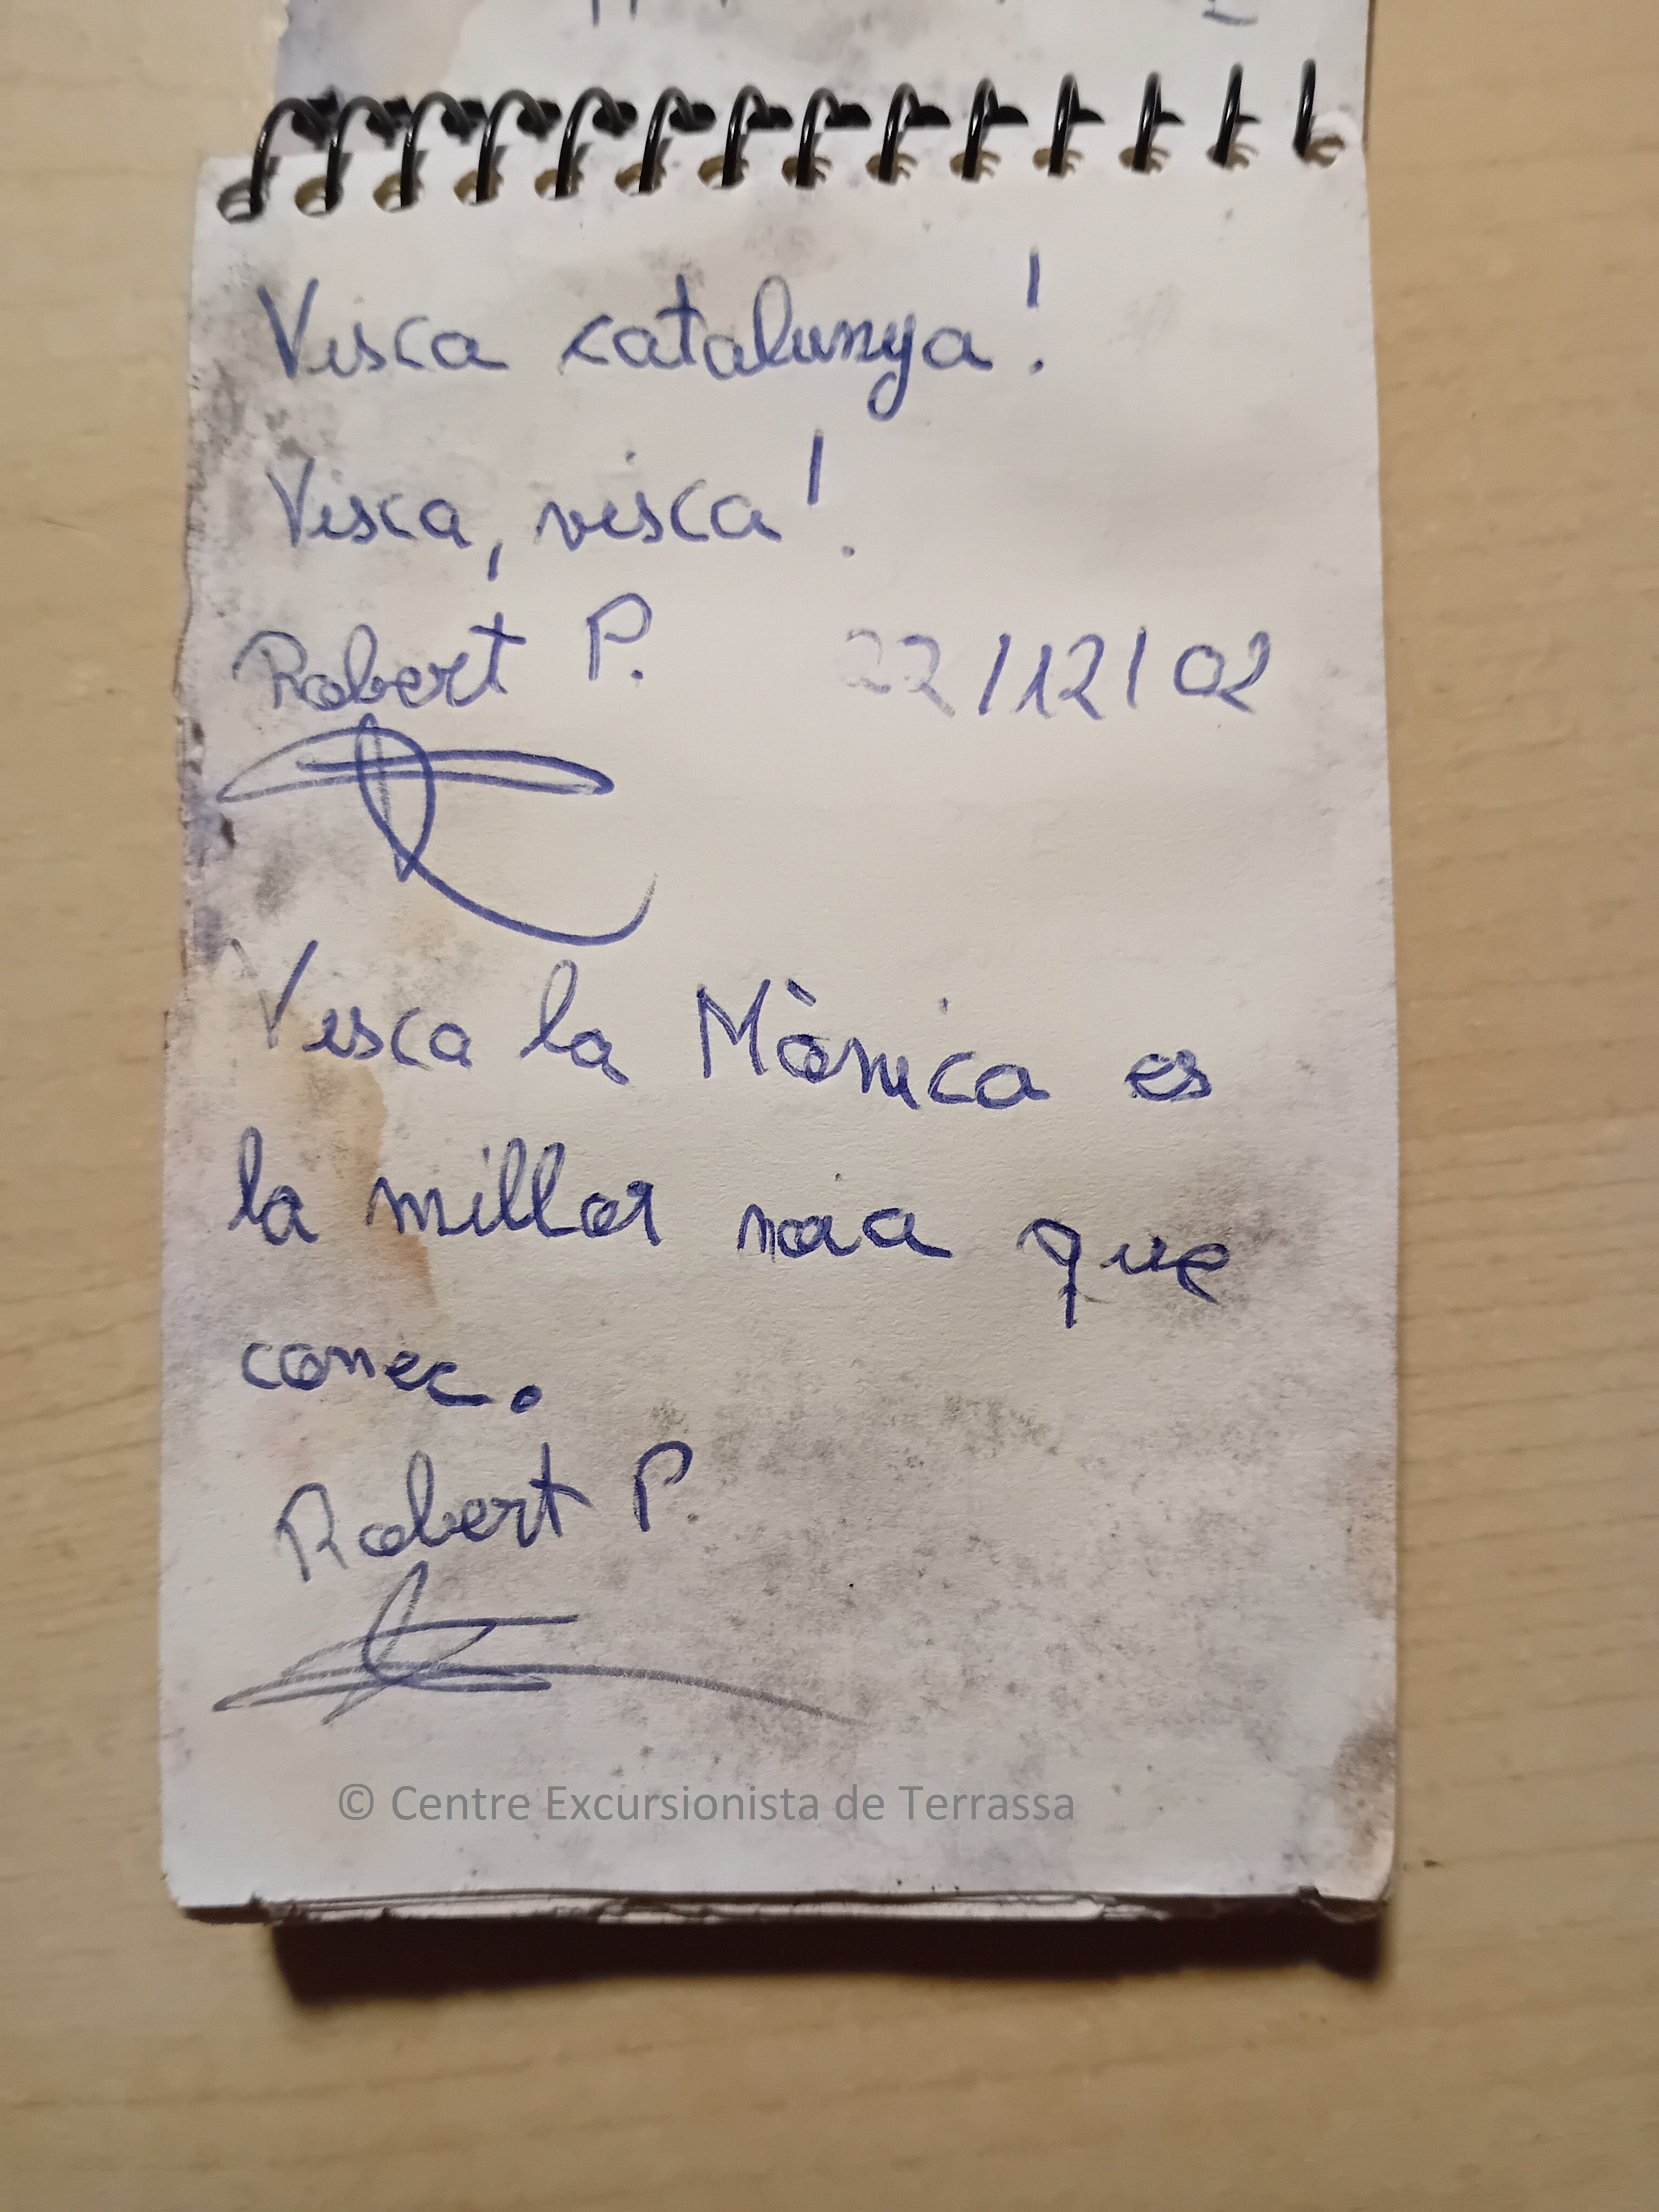 Visca catalunya!
Visca, visca!
Robert P. 22/12/02
Visca la Mònica es
la millor noia que
conec.
Robert P.
© Centre Excursionista de Terrassa